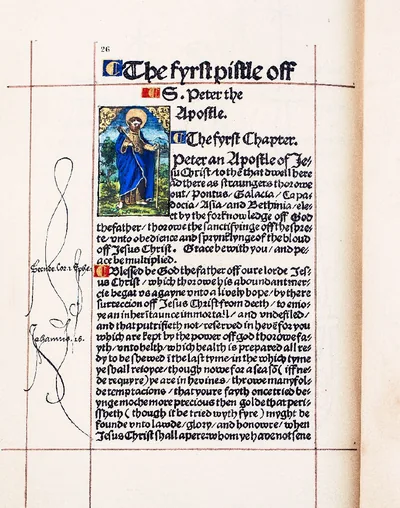 26
The fyrst pistle off
S. Peter the
Apostle.
The fyrst Chapter.
Peter an Apostle of Je-
su Christ / to the that dwell here
ad there as straungers thorowe
out / Pontus / Galacia / Capa-
docia / Asia / and Bethinia / ele-
ct by the forknowledge off God
the father / thorowe the sanctifyinge off the spre-
te / vnto obedience and sprynklynge of the bloud
off Jesus Christ. Grace be with you / and pe-
ace be multiplied.
Blessed be God the father off oure lorde Jes-
us Christ / which thorowe his aboundant mer-
cie begat vs agayne vnto a lively hope / by the re
surreccion off Jesus Christ from deeth / to enio-
ye an inheritaunce immortall / and vndefiled /
and that putrifieth not / reserved in hevē for you
which are kept by the power off god thorowe fa-
yth / vnto helth / which helth is prepared all re-
dy to be shewed ī the last tyme / in the which tyme
ye shall reioyce / though nowe for a seasō ( iff ne-
de requyre ) ye are in hevines / throwe manyfol-
de temptacions / that youre fayth once tried be-
ynge moche more precious then golde that peri-
ssheth ( though it be tried wyth fyre ) myght be
founde vnto lawde / glory / and honoure / when
Jesus Christ shall apere: whom ye have not sene
Johannis. 15.